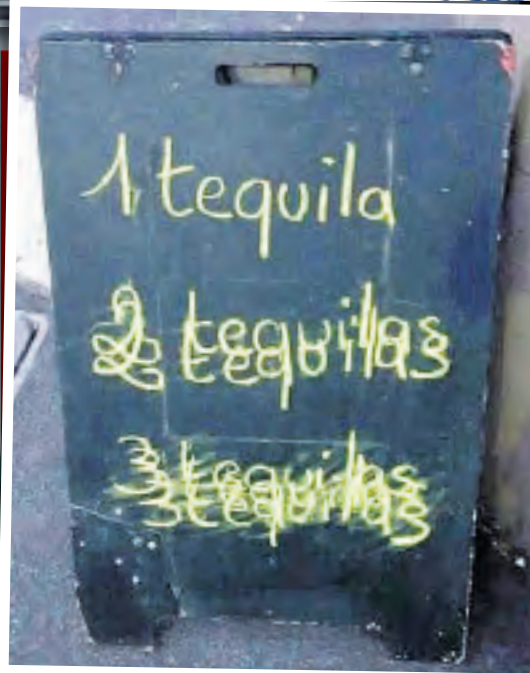 1 tequila
2 tequilas
3 tequilas